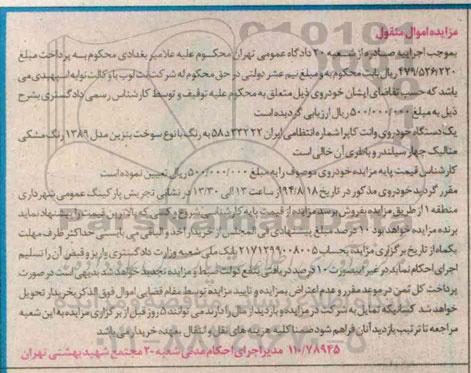 مزایده اموال منقول
بموجب اجراییه صادره از شعبه ۲۰ دادگاه عمومی تهران محکوم علیه علامیر بغدادی محکوم به پرداخت مبلغ
۴۷۹/۵۲۶/۲۲۰ ریال بابت محکوم به و مبلغ نیم عشر دولتی در حق محکوم له شرکت بت لوب با وکالت نوایه اسپهبدی می
باشد که حسب تقاضای ایشان خودروی ذیل متعلق به محکوم علیه توقیف و توسط کارشناس رسمی دادگستری بشرح
ذیل به مبلغ ۵۰۰/۰۰۰/۰۰۰ ریال ارزیابی گردیده است
یک دستگاه خودروی وانت کاپرا شماره انتظامی ایران ۲۲ ۳۳۲ د ۵۸ به رنگ با نوع سوخت بنزین مدل ۱۳۸۹ رنگ مشکی
متالیک چهار سیلندر و باطری آن خالی است
کارشناس قیمت پایه مزایده خودروی موصوف را به مبلغ ۵۰۰/۰۰۰/۰۰۰ ریال تعیین نموده است
مقرر گردید خودروی مذکور در تاریخ ۹۴/۸/۱۸ از ساعت ۱۳ الی ۱۳/۳۰ در نشانی تجریش پارکینگ عمومی شهرداری
منطقه ۱ از طریق مزایده بفروش برسد مزایده از قیمت پایه کارشناسی شروع و کسی که بالاترین قیمت را پیشنهاد نماید
برنده مزایده خواهد بود ۱۰ درصد مبلغ پیشنهادی فی المجلس از خریدار اخذ و الباقی می بایستی حداکثر ظرف مهلت
یکماه از تاریخ برگزاری مزایده بحساب ۲۱۷۱۲۹۹۰۰۸۰۰۵ بانک ملی شعبه وزارت دادگستری واریز و قبض آن را تسلیم
اجرای احکام نماید در غیر اینصورت ۱۰ درصد دریافتی بنفع دولت ضبط و مزایده تجدید خواهد شد بدیهی است در صورت
پرداخت کل ثمن در موعد مقرر و عدم اعتراض بمزایده و تایید مزایده توسط مقام قضایی اموال فوق الذکر بخریدار تحویل
خواهد شد کسانیکه تمایل به شرکت در مزایده و بازدید از مال را دارند می توانند ۵ روز قبل از برگزاری مزایده به این شعبه
مراجعه تا ترتیب بازدید آنان فراهم شود ضمنا کلیه هزینه های نقل و انتقال بعهده خریدار می باشد
۱۱۰/۷۸۹۴۵ مدیر اجرای احکام مدنی شعبه ۲۰ مجتمع شهید بهشتی تهران